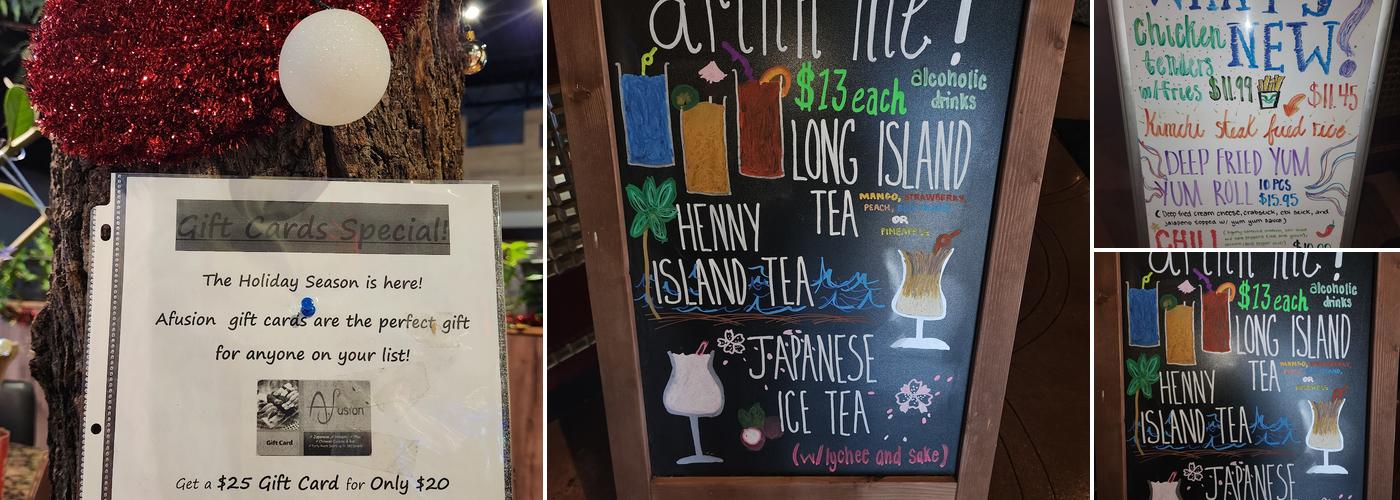 Gift Cards Special!
The Holiday Season is here!
Afusion gift cards are the perfect gift
for anyone on your list!
Afusion
Gift Card
Get a $25 Gift Card for Only $20
drink me!
$13 each
alcoholic
drinks
LONG ISLAND
TEA
MANGO, STRAWBERRY,
PEACH,
OR
PINEAPPLE
HENNY
ISLAND TEA
JAPANESE
ICE TEA
(w/lychee and sake)
WHAT'S
NEW!
chicken
tenders
w/fries $11.99
$11.45
Kimchi steak fried rice
DEEP FRIED YUM
YUM ROLL 10 PCS
$15.95
(Deep fried cream cheese, crabstick, ebi stick, and
jalapeno topped w/ yum yum sauce)
CHILI
drink me!
$13 each
alcoholic
drinks
LONG ISLAND
TEA
OR
HENNY
ISLAND TEA
JAPANESE